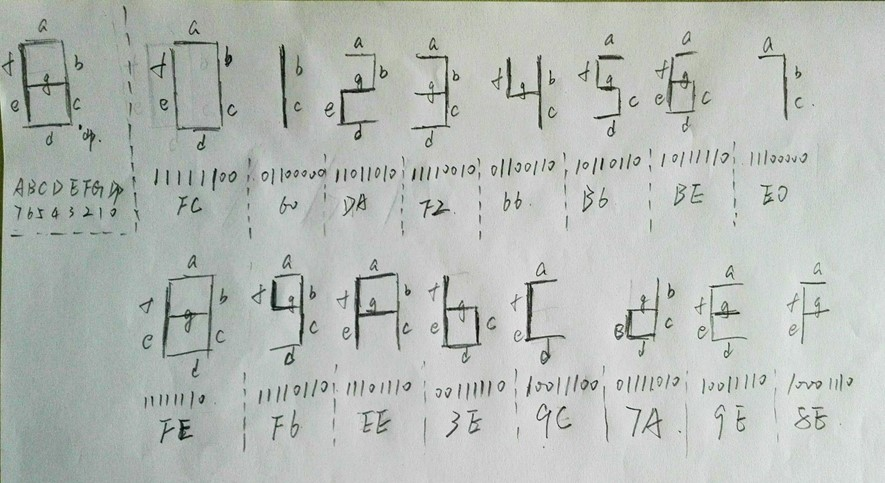 a a a a a a a
f b f b b b b f b f f b
g g g g g g
e c e c c e c c c e c c
d dp. d d d d d
ABCDEFG Dp 11111100 01100000 11011010 11110010 01100110 10110110 10111110 11100000
76543210 FC 60 DA F2. 66. B6 BE E0
a a a a a a
f b f b f b f f b f f
g g g g g g g
e c c e c e c e B c e e
d d d d d d
11111110. 11110110 11101110 00111110 10011100 01111010 10011110 10001110
FE F6 EE 3E 9C 7A. 9E 8E.